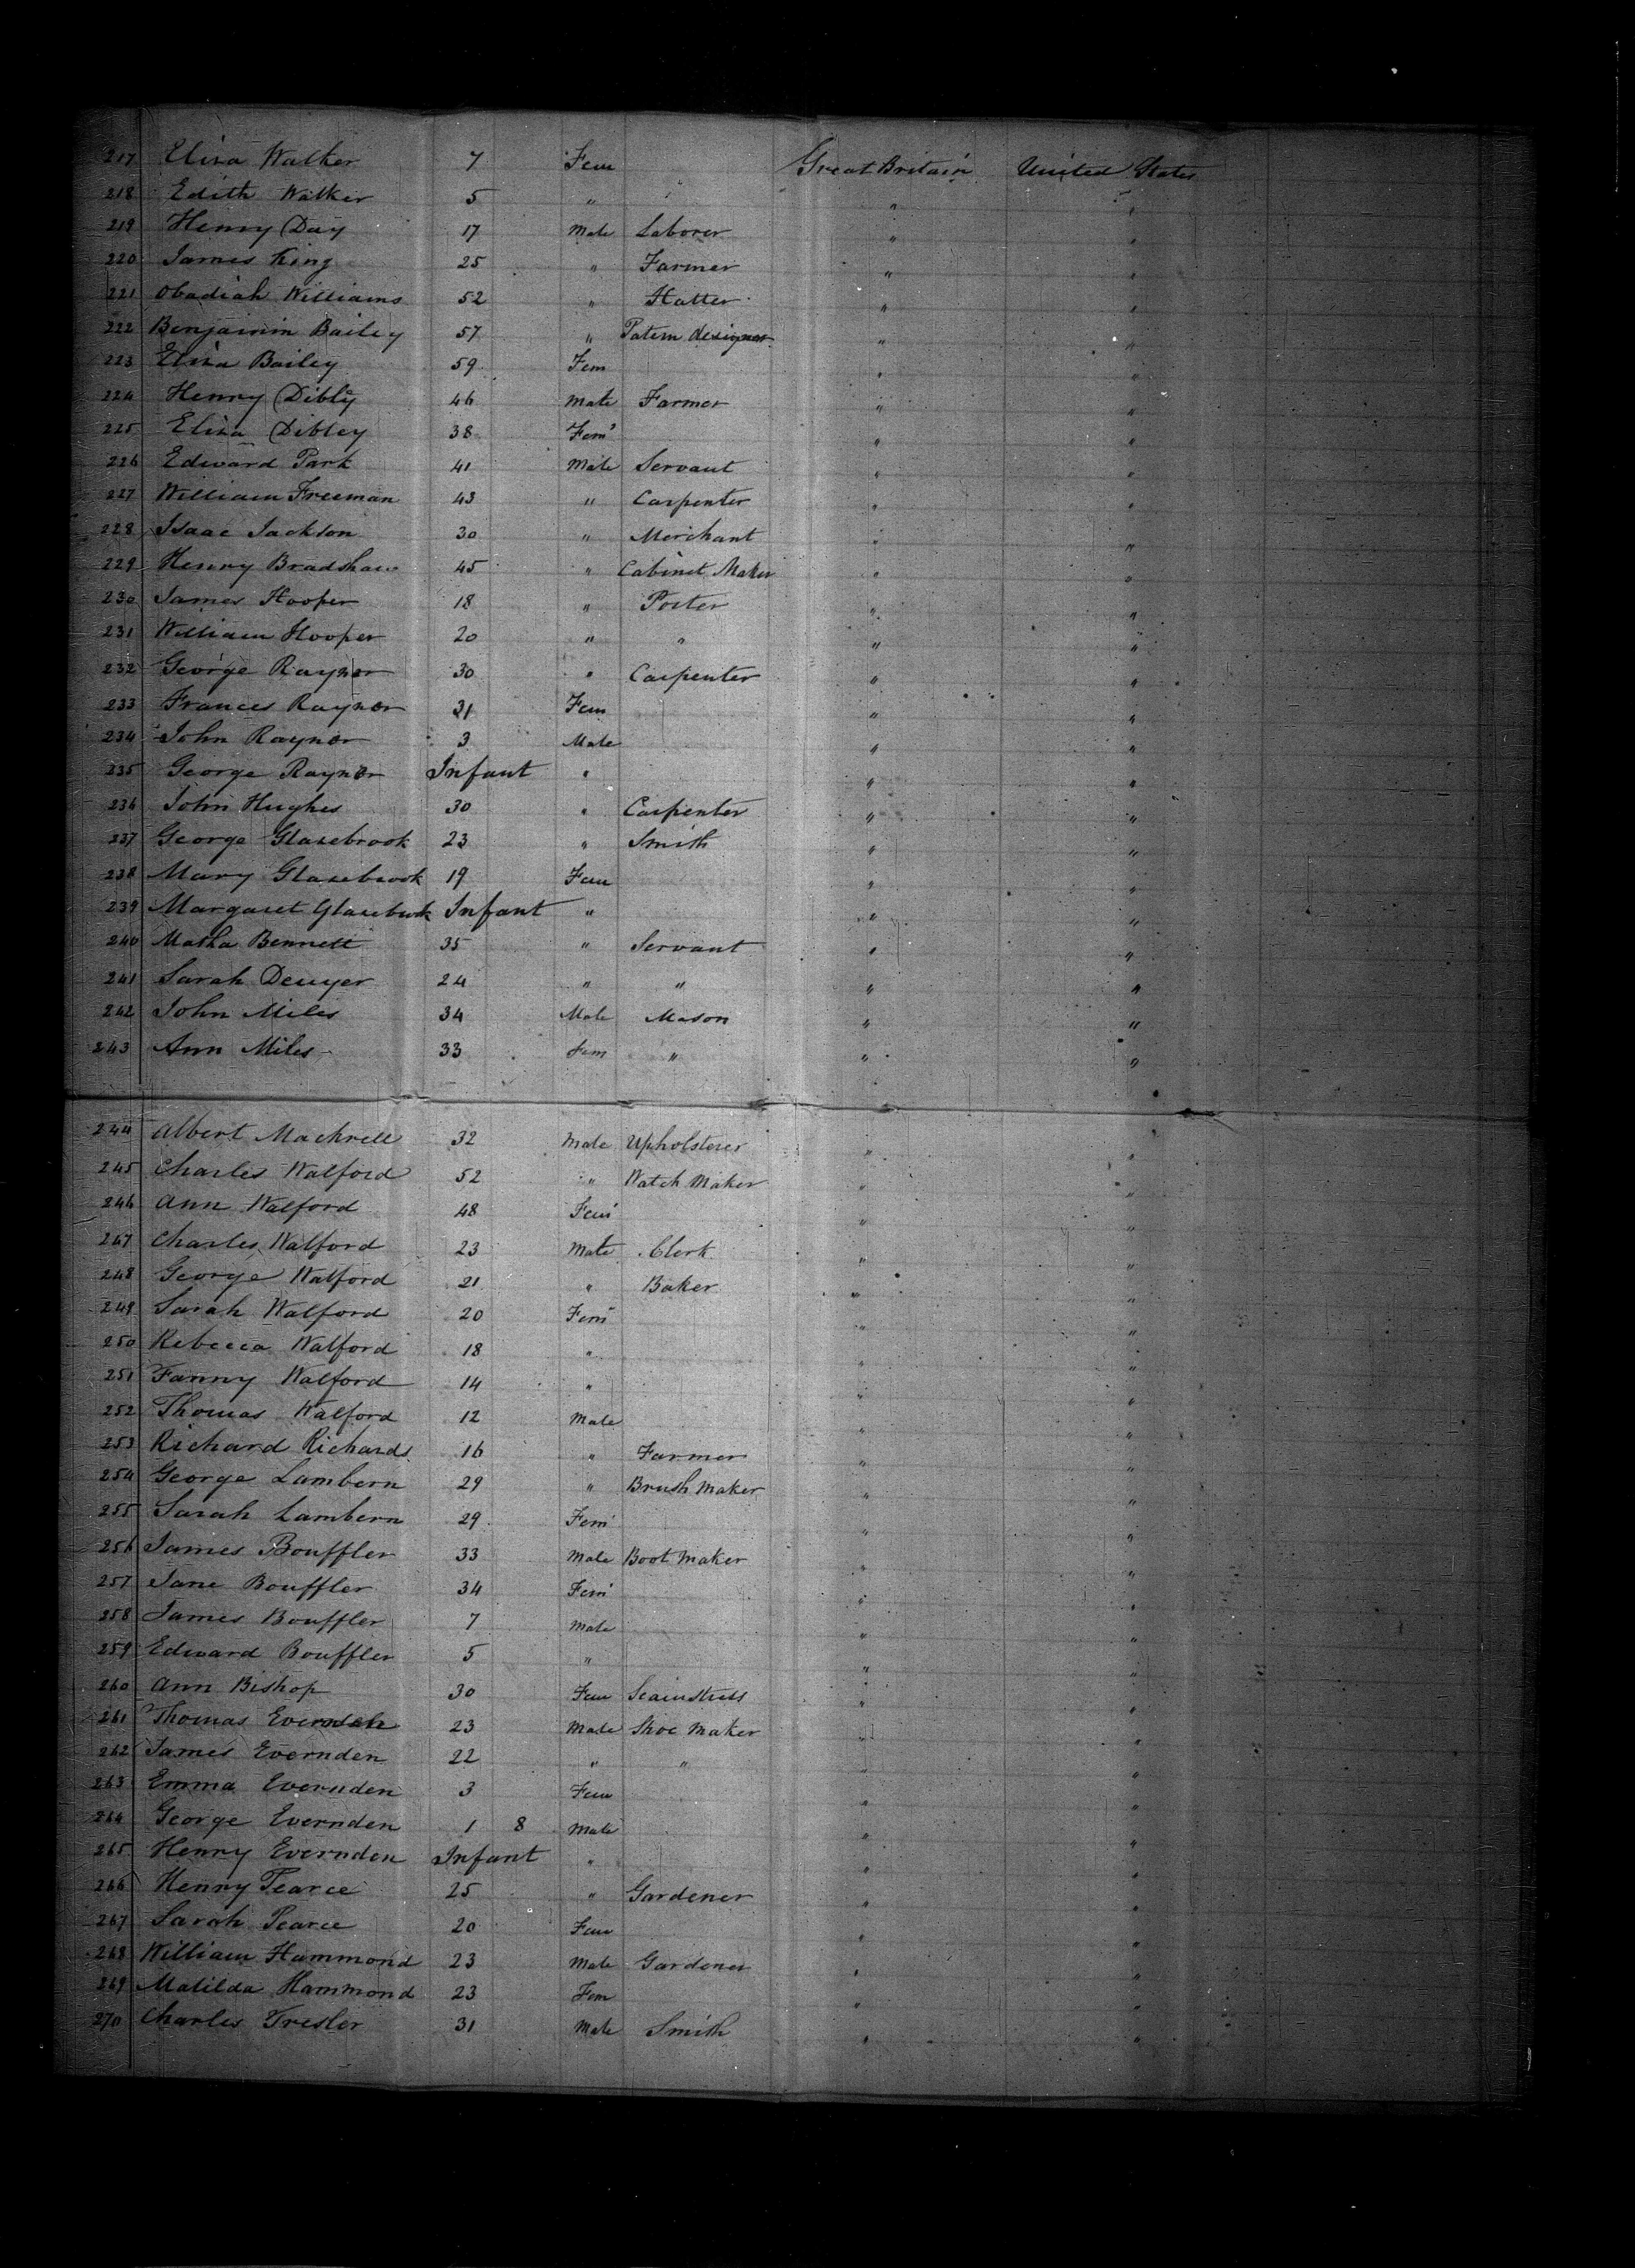 217 Eliza Walker 7 Fem Great Britain United States
218 Edith Walker 5 " " "
219 Henry Day 17 Male Laborer " "
220 James King 25 " Farmer " "
221 Obadiah Williams 52 " Hatter " "
222 Benjainin Bailey 57 " Patern designer " "
223 Eliza Bailey 59 Fem " "
224 Henry Dibly 46 Male Farmer " "
225 Eliza Dibley 38 Fem " "
226 Edward Park 41 Male Servant " "
227 William Freeman 43 " Carpenter " "
228 Isaac Jackson 30 " Merchant " "
229 Henry Bradshaw 45 " Cabinet Maker " "
230 James Hooper 18 " Porter " "
231 William Hooper 20 " " " "
232 George Raynor 30 " Carpenter " "
233 Frances Raynor 31 Fem " "
234 John Raynor 3 Male " "
235 George Raynor Infant " " "
236 John Hughes 30 " Carpenter " "
237 George Glazebrook 23 " Smith " "
238 Mary Glazebrook 19 Fem " "
239 Margaret Glazebrok Infant " " "
240 Matha Bennett 35 " Servant " "
241 Sarah Dewyer 24 " " " "
242 John Miles 34 Male Mason " "
243 Ann Miles 33 Fem " " "
244 Albert Machrell 32 Male Upholsterer " "
245 Charles Walford 52 " Watch Maker " "
246 Ann Walford 48 Fem " "
247 Charles Walford 23 Male Clerk " "
248 George Walford 21 " Baker " "
249 Sarah Walford 20 Fem " "
250 Rebecca Walford 18 " " "
251 Fanny Walford 14 " " "
252 Thomas Walford 12 Male " "
253 Richard Richards 16 " Farmer " "
254 George Lambern 29 " Brush Maker " "
255 Sarah Lambern 29 Fem " "
256 James Bouffler 33 Male Boot Maker " "
257 Jane Bouffler 34 Fem " "
258 James Bouffler 7 Male " "
259 Edward Bouffler 5 " " "
260 Ann Bishop 30 Fem Seamstress " "
261 Thomas Evernden 23 Male Shoe Maker " "
262 James Evernden 22 " " " "
263 Emma Evernden 3 Fem " "
264 George Evernden 1 8 Male " "
265 Henry Evernden Infant " " "
266 Henry Pearce 25 " Gardener " "
267 Sarah Pearce 20 Fem " "
268 William Hammond 23 Male Gardener " "
269 Matilda Hammond 23 Fem " "
270 Charles Tresler 31 Male Smith " "